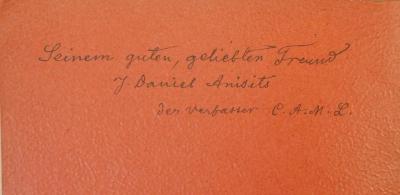 Seinem guten, geliebten Freund
J. Daniel Anisits
der Verfasser C. A. M. L.